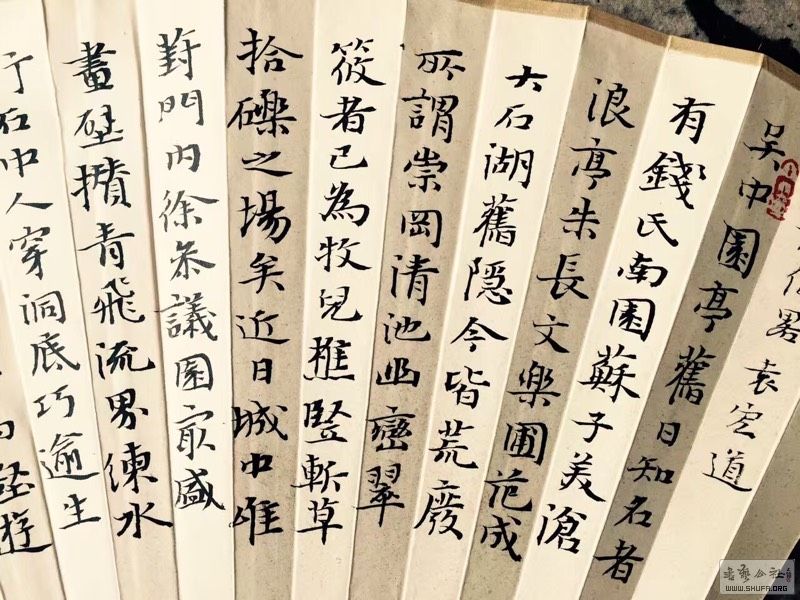 紀畧 袁宏道
吳中園亭舊日知名者
有錢氏南園蘇子美滄
浪亭朱長文樂圃范成
大石湖舊隱今皆荒廢
所謂崇岡清池幽巒翠
筱者已為牧兒樵豎斬草
拾礫之場矣近日城中唯
葑門內徐參議園最盛
畫壁攢青飛流界練水
行石中人穿洞底巧逾生
WWW.SHUFA.ORG